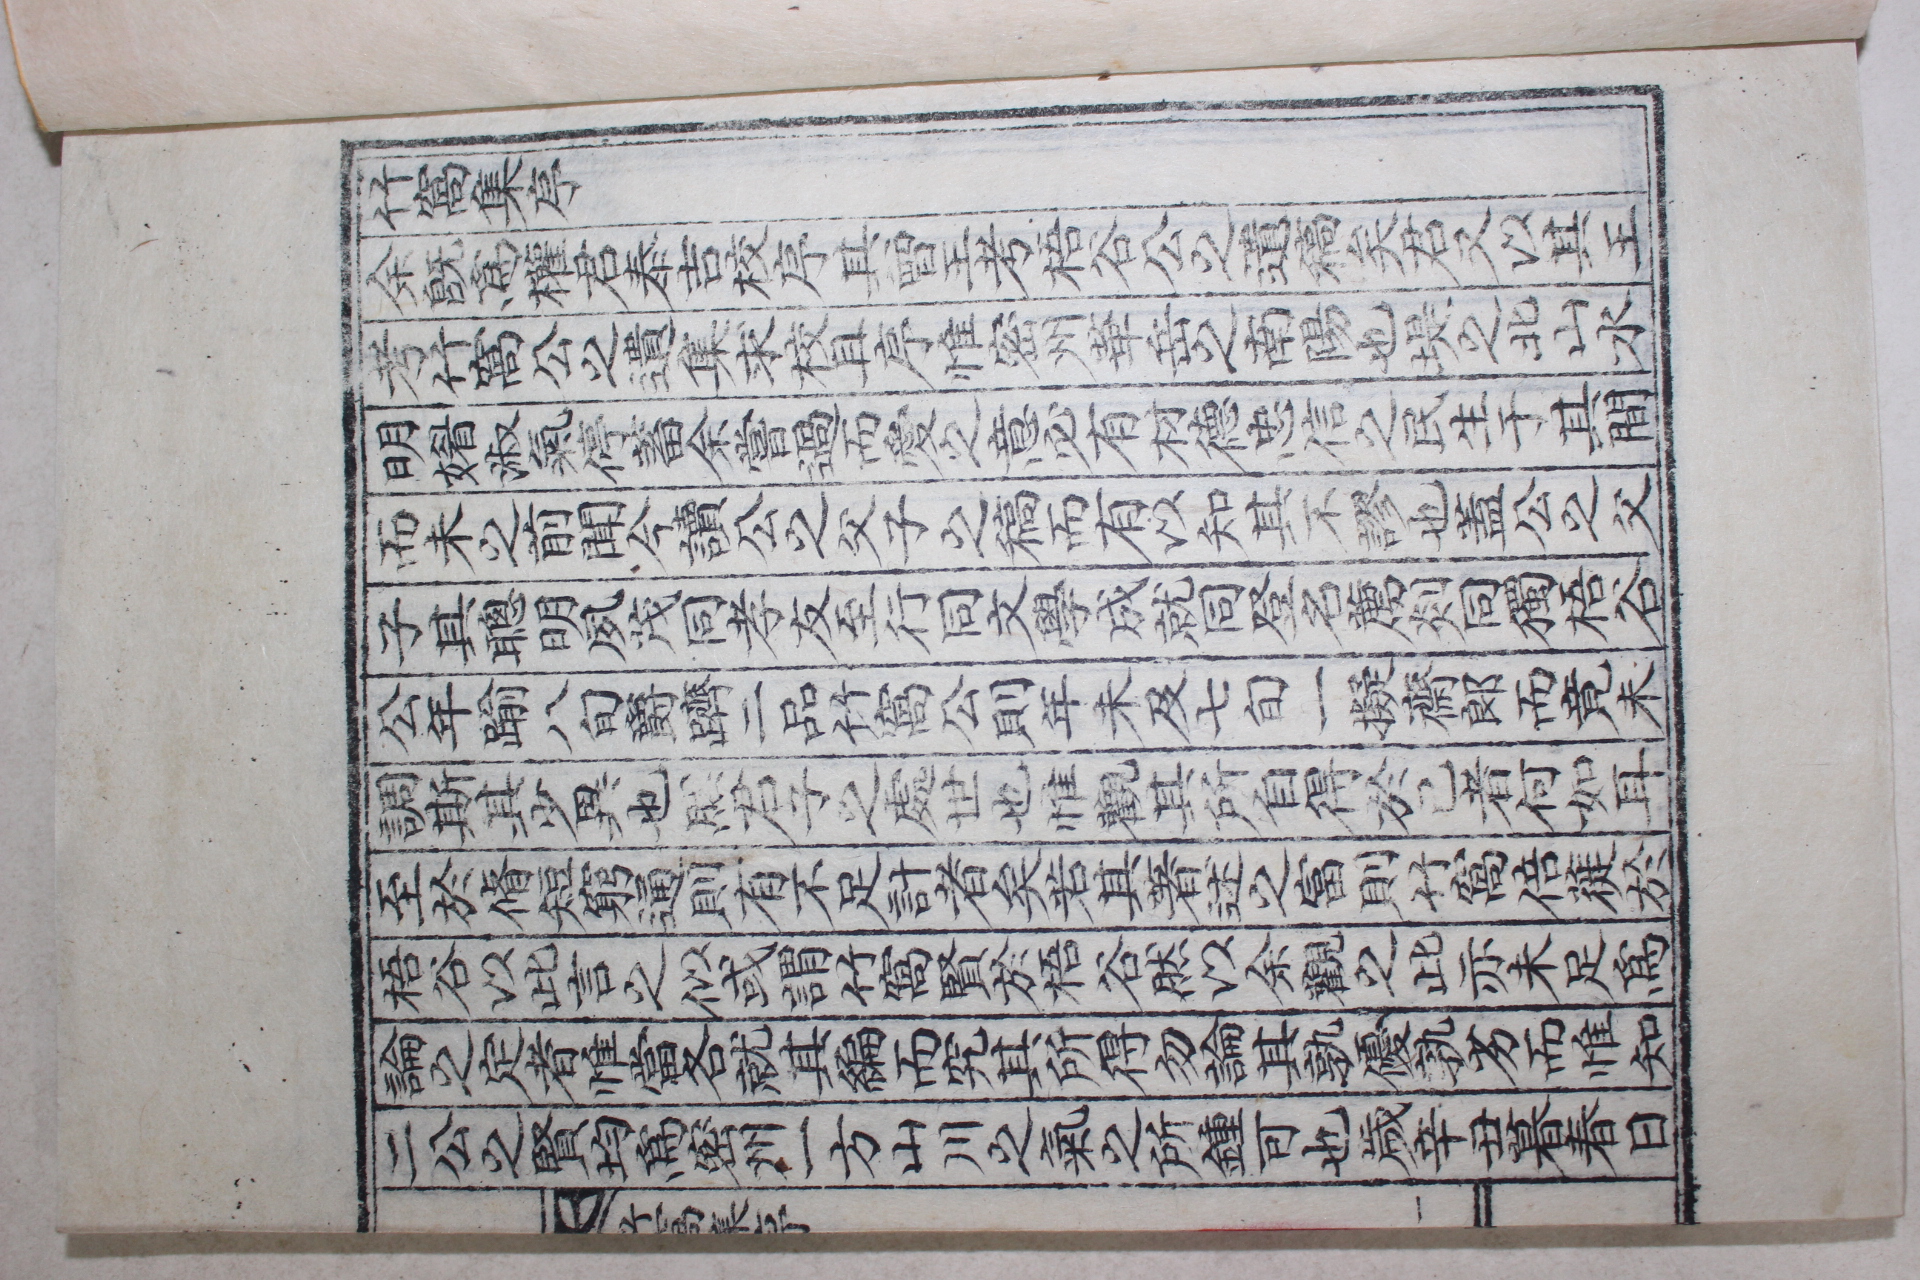 竹窩集序
余旣爲權君泰吉校序其曾王考梧谷公之遺稿矣君又以其王
考竹窩公之遺集來校且序惟密州華岳之南陽也揆之北山水
明媚淑氣停蓄余嘗過而愛之意必有材德忠信之民生于其間
而未之前聞今讀公之父子之稿而有以知其不謬也蓋公之父
子其聰明夙茂同孝友至行同文學成就同登名薦剡同獨梧谷
公年踰八旬爵躋二品竹窩公則年未及七旬一擬齋郞而竟未
調斯其少異也然君子之處世也惟觀其所自得於己者何如耳
至於脩短窮通則有不足計者矣若其著述之富則竹窩倍蓰於
梧谷以此言之似或謂竹窩賢於梧谷然以余觀之此亦未足爲
論之定者惟當各就其編而究其所得勿論其孰優孰劣而惟知
二公之賢均爲密州一方山川之氣之所鍾可也歲辛丑暮春日
竹窩集序 一